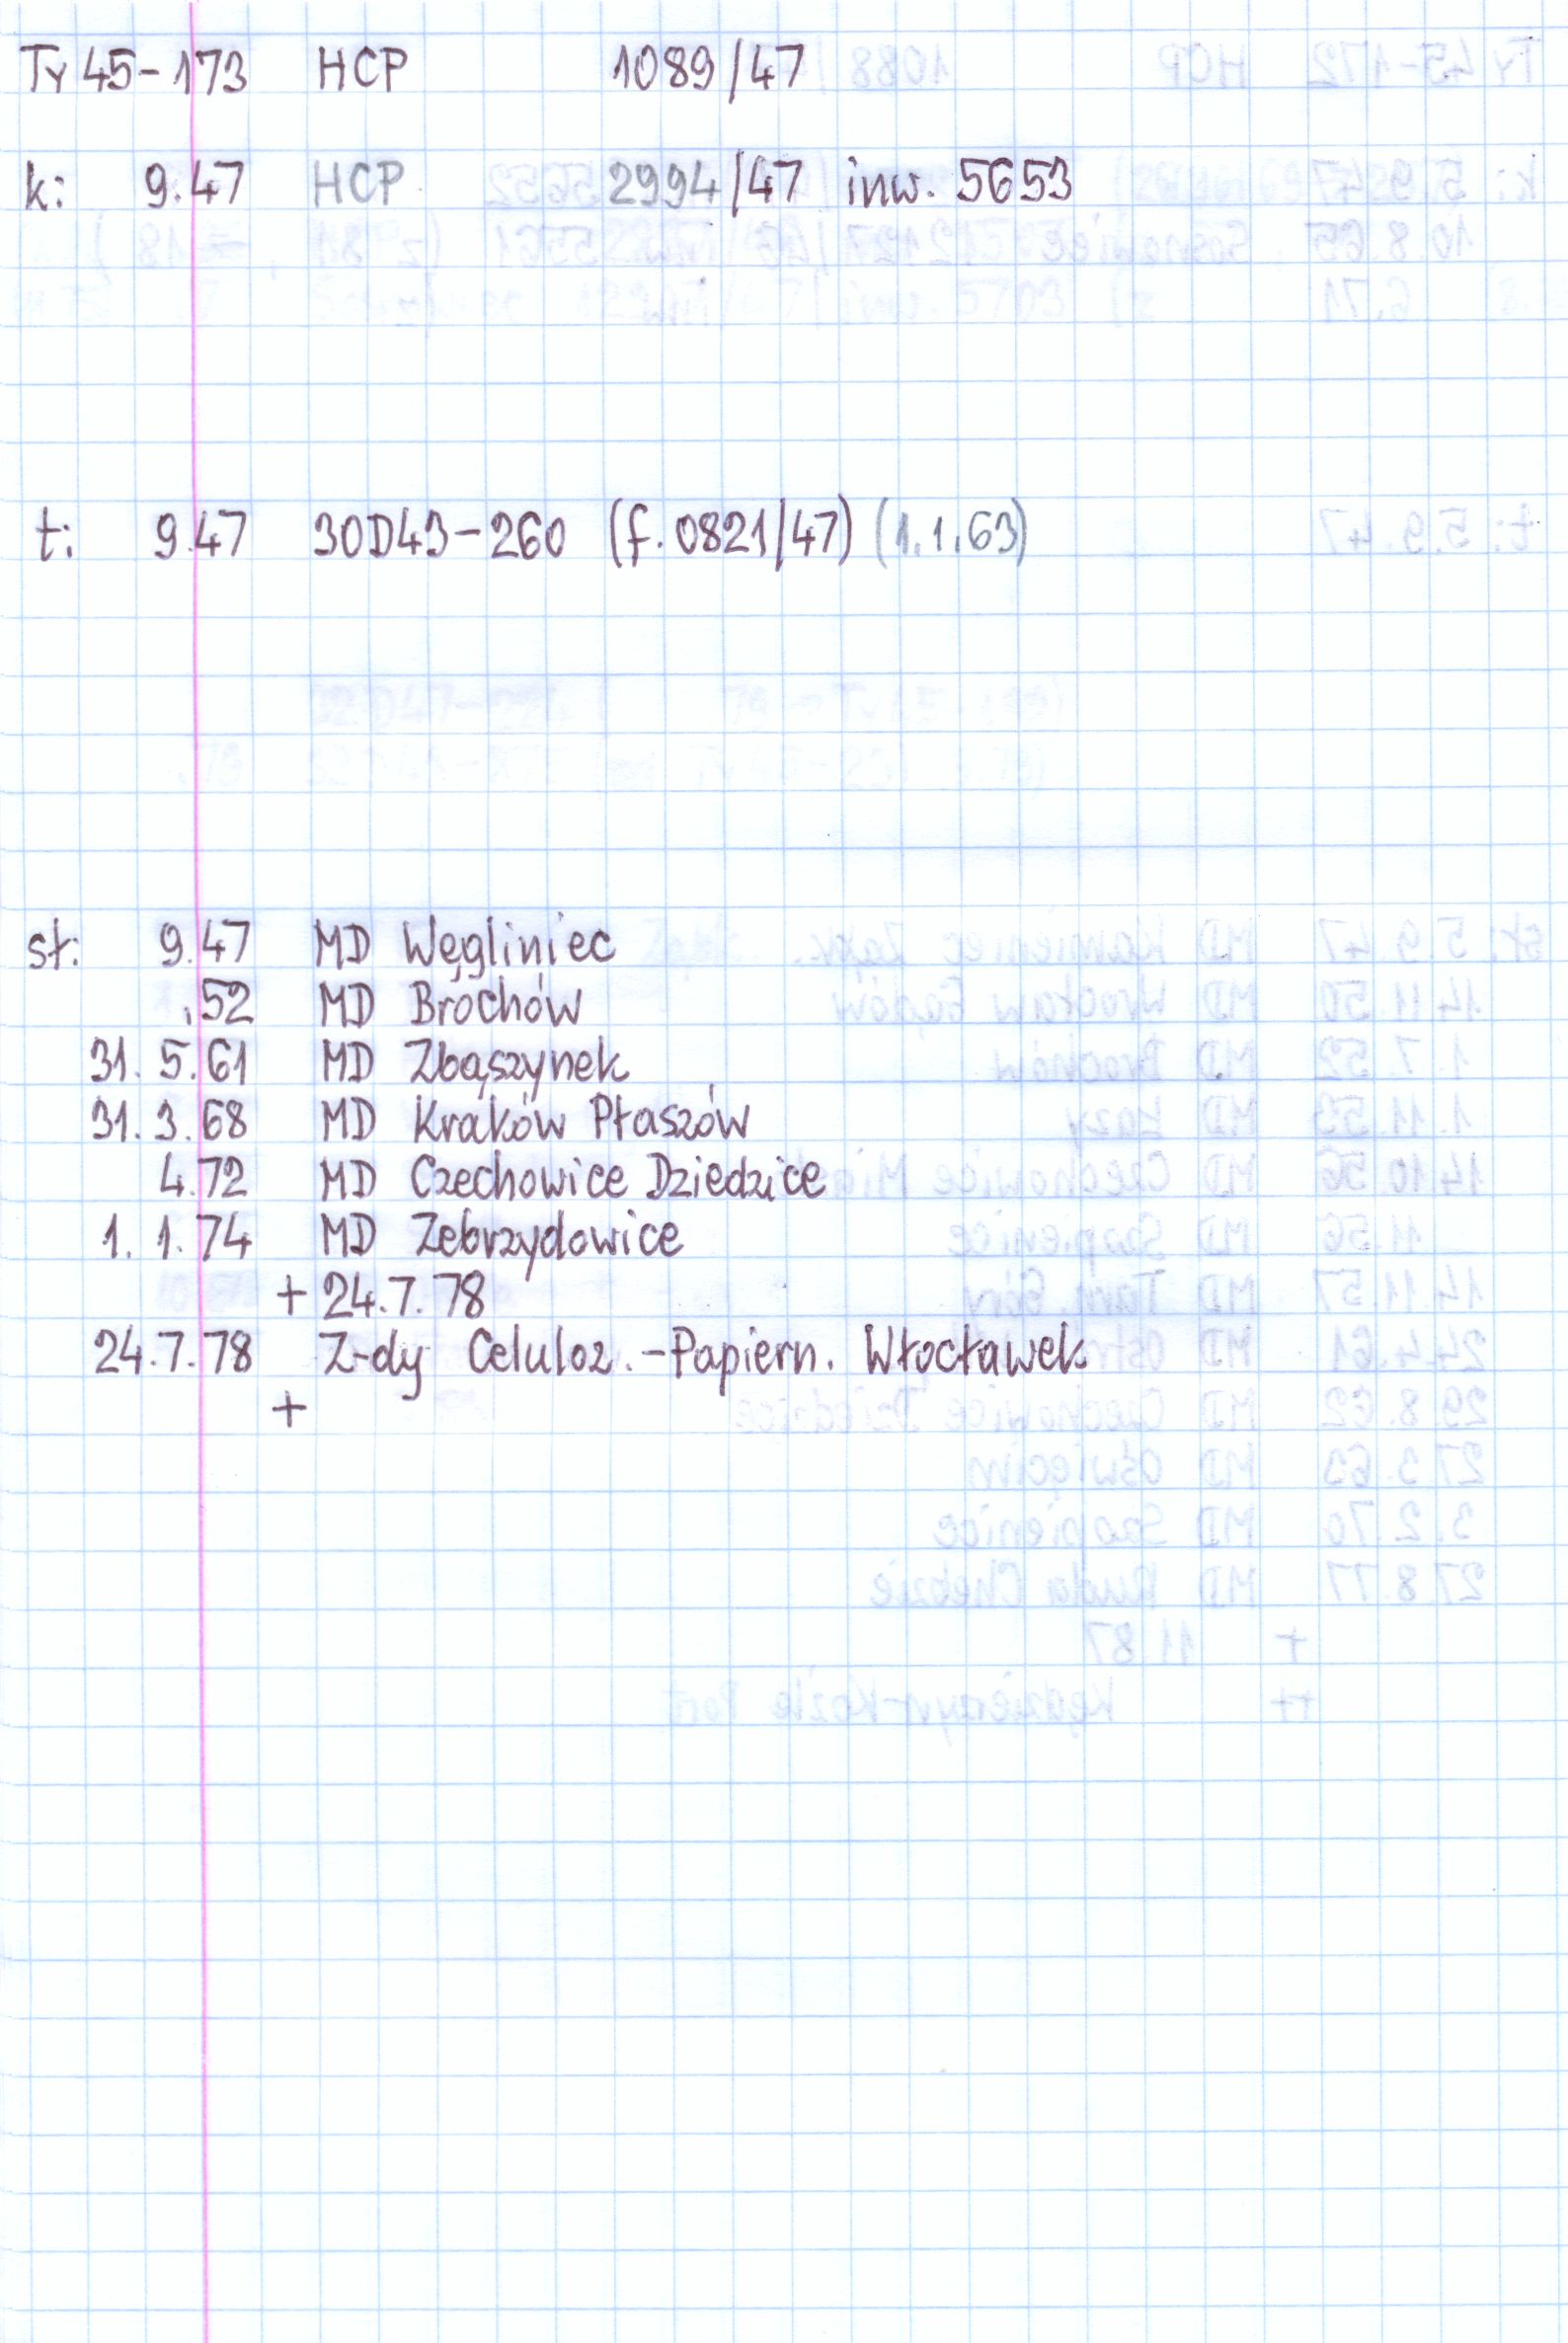 Ty45-173 HCP 1089/47
k: 9.47 HCP 2994/47 inw. 5653
t: 9.47 30D43-260 (f.0821/47) (1.1.63)
st: 9.47 MD Węgliniec
.52 MD Brochów
31. 5.61 MD Zbąszynek
31. 3.68 MD Kraków Płaszów
4.72 MD Czechowice Dziedzice
1. 1.74 MD Zebrzydowice
+ 24.7.78
24.7.78 Z-dy Celuloz.-Papiern. Włocławek
+